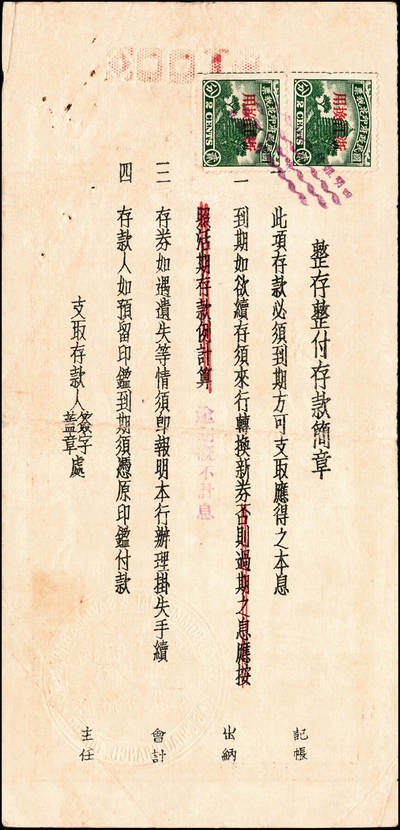 2 CENTS
2 CENTS
整存整付存款簡章
此項存款必須到期方可支取應得之本息
一 到期如欲續存須來行轉換新券否則過期之息應按
照活期存款例計算
不計息
三 存券如遇遺失等情須即報明本行辦理掛失手續
四 存款人如預留印鑑到期須憑原印鑑付款
支取存款人簽字蓋章處
記帳
出納
會計
主任